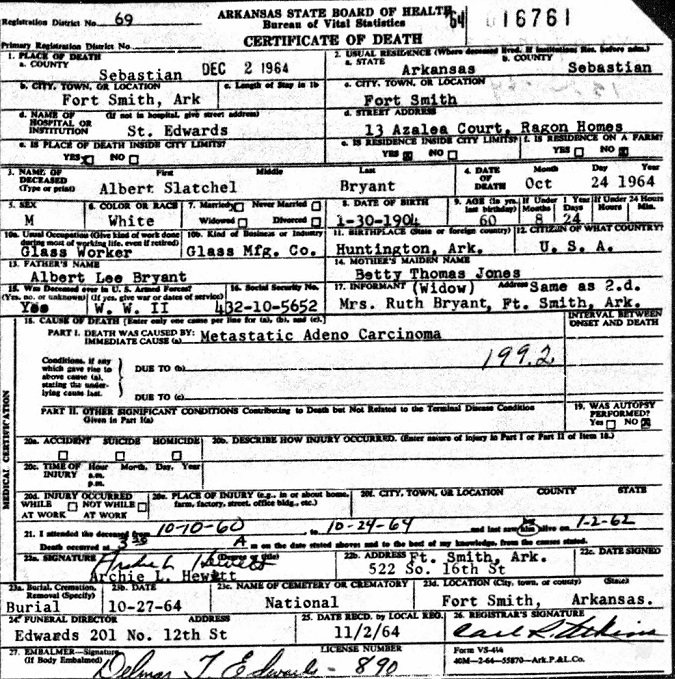 Registration District No. 69
ARKANSAS STATE BOARD OF HEALTH
64 16761
Bureau of Vital Statistics
Primary Registration District No.
CERTIFICATE OF DEATH
1. PLACE OF DEATH
a. COUNTY
Sebastian DEC 2 1964
2. USUAL RESIDENCE (Where deceased lived. If institution: Res. before adm.)
a. STATE Arkansas b. COUNTY Sebastian
b. CITY, TOWN, OR LOCATION c. Length of Stay in 1b
Fort Smith, Ark
c. CITY, TOWN, OR LOCATION
Fort Smith
d. NAME OF HOSPITAL OR INSTITUTION (If not in hospital, give street address)
St. Edwards
d. STREET ADDRESS
13 Azalea Court, Ragon Homes
e. IS PLACE OF DEATH INSIDE CITY LIMITS?
YES NO
e. IS RESIDENCE INSIDE CITY LIMITS?
YES NO
f. IS RESIDENCE ON A FARM?
YES NO
3. NAME OF DECEASED (Type or print) First Middle Last
Albert Slatchel Bryant
4. DATE OF DEATH Month Day Year
Oct 24 1964
5. SEX
M
6. COLOR OR RACE
White
7. Married Never Married
Widowed Divorced
8. DATE OF BIRTH
1-30-1904
9. AGE (In yrs. last birthday) If Under 1 Year Months Days If Under 24 Hours Hours Min.
60 8 24
10a. Usual Occupation (Give kind of work done during most of working life, even if retired)
Glass Worker
10b. Kind of Business or Industry
Glass Mfg. Co.
11. BIRTHPLACE (State or foreign country)
Huntington, Ark.
12. CITIZEN OF WHAT COUNTRY?
U. S. A.
13. FATHER'S NAME
Albert Lee Bryant
14. MOTHER'S MAIDEN NAME
Betty Thomas Jones
15. Was Deceased ever in U. S. Armed Forces?
(Yes, no, or unknown) (If yes, give war or dates of service)
Yes W. W. II
16. Social Security No.
432-10-5652
17. INFORMANT (Widow) Address Same as 2.d.
Mrs. Ruth Bryant, Ft. Smith, Ark.
MEDICAL CERTIFICATION
18. CAUSE OF DEATH [Enter only one cause per line for (a), (b), and (c).]
INTERVAL BETWEEN ONSET AND DEATH
PART I. DEATH WAS CAUSED BY:
IMMEDIATE CAUSE (a) Metastatic Adeno Carcinoma
199.2
Conditions, if any which gave rise to above cause (a), stating the underlying cause last.
DUE TO (b)
DUE TO (c)
PART II. OTHER SIGNIFICANT CONDITIONS Contributing to Death but Not Related to the Terminal Disease Condition Given in Part I(a)
19. WAS AUTOPSY PERFORMED?
Yes NO
20a. ACCIDENT SUICIDE HOMICIDE
20b. DESCRIBE HOW INJURY OCCURRED. (Enter nature of injury in Part I or Part II of Item 18.)
20c. TIME OF INJURY Hour a.m. p.m. Month, Day, Year
20d. INJURY OCCURRED
WHILE AT WORK NOT WHILE AT WORK
20e. PLACE OF INJURY (e.g., in or about home, farm, factory, street, office bldg., etc.)
20f. CITY, TOWN, OR LOCATION COUNTY STATE
21. I attended the deceased from 10-10-60 to 10-24-64 and last saw him alive on 1-2-62
Death occurred at A m on the date stated above; and to the best of my knowledge, from the causes stated.
22a. SIGNATURE (Degree or title)
Archie L. Hewett
Archie L. Hewett
22b. ADDRESS Ft. Smith, Ark.
522 So. 16th St
22c. DATE SIGNED
23a. Burial, Cremation, Removal (Specify)
Burial
23b. DATE
10-27-64
23c. NAME OF CEMETERY OR CREMATORY
National
23d. LOCATION (City, town, or county) (State)
Fort Smith, Arkansas.
24. FUNERAL DIRECTOR ADDRESS
Edwards 201 No. 12th St
25. DATE RECD. BY LOCAL REG.
11/2/64
26. REGISTRAR'S SIGNATURE
27. EMBALMER—Signature (If Body Embalmed)
Delmar T Edwards
LICENSE NUMBER
890
Form VS-414
40M—2-64—55870—Ark.P.&L.Co.